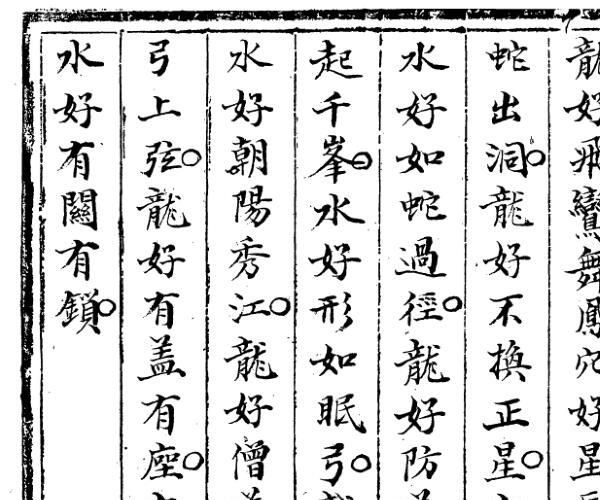 龍好飛鸞舞鳳穴好星
蛇出洞○龍好不換正星○
水好如蛇過徑○龍好防
起千峯○水好形如眠弓○
水好朝陽秀江○龍好僧
弓上弦○龍好有盖有座○
水好有關有鎖○